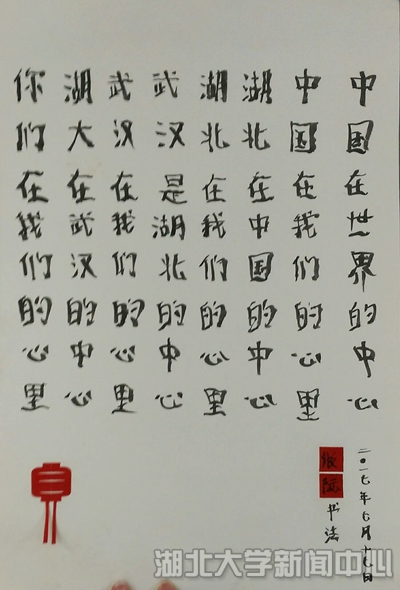 中国在世界的中心
中国在我们的心里
湖北在中国的中心
湖北在我们的心里
武汉是湖北的中心
武汉在我们的心里
湖大在武汉的中心
你们在我们的心里
二〇一七年七月十九日
书法
湖北大学新闻中心